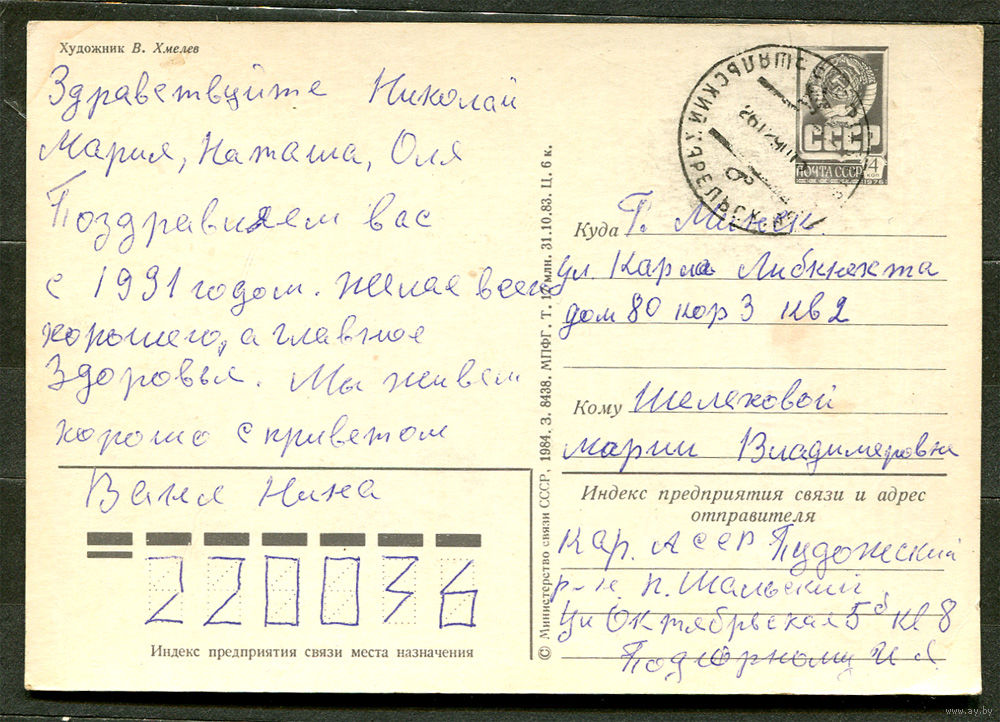 Художник В. Хмелев
Здравствуйте Николай
Мария, Наташа, Оля
Поздравляем вас
с 1991 годом. Желаем всего
хорошего, а главное
Здоровья. Мы живем
хорошо с приветом
Ваня Нина
220036
Индекс предприятия связи места назначения
© Министерство связи СССР, 1984. З. 8438. МПФГ. Т. 12 млн. 31.10.83. Ц. 6 к.
СССР
ПОЧТА СССР
4 коп
1976
Куда Г. Минск.
ул. Карла Либкнехта
дом 80 кор 3 кв 2
Кому Шелеховой
Марии Владимировне
Индекс предприятия связи и адрес
отправителя
Кар. АССР Пудожский
р-н п. Шальский
ул Октябрьская 5б кв 8
Подгорному И Я.
www.ay.by